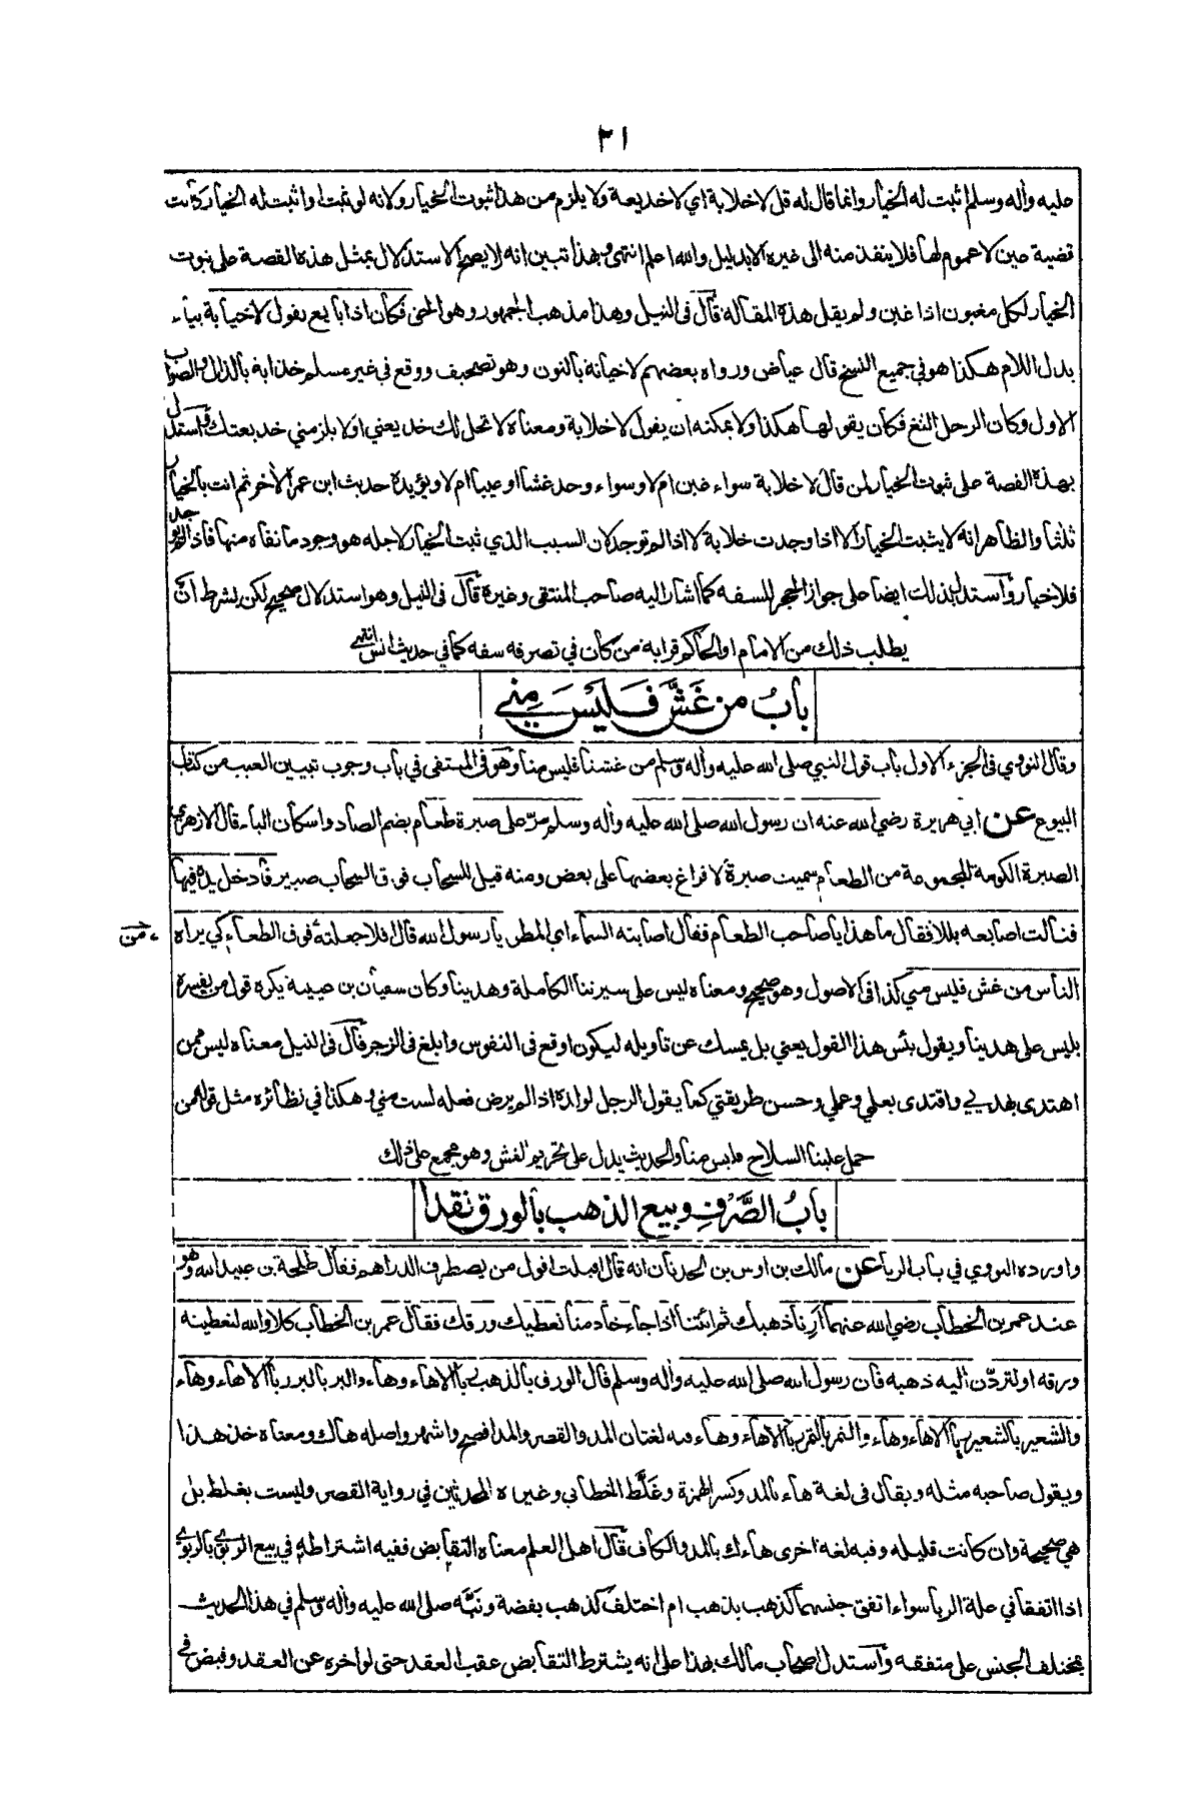 ٢١
عليه وأله وسلم اثبت له الخيار وانما قال له قل لا خلابة اي لا خديعة ولا يلزم من هذا ثبوت الخيار ولانه لو ثبت او اثبت له الخيار كانت
قضية عين لا عموم لها فلا ينفذ منه الى غيره الا بدليل والله اعلم انتهى وبهذا تبين انه لا يصح الاستدلال بمثل هذه القصة على ثبوت
الخيار لكل مغبون اذا غبن ولم يقل هذه المقالة قال فى النيل وهذا مذهب الجمهور وهو الحق فكان اذا بايع يقول لا خيابة بياء
بدل اللام هكذا هو في جميع النسخ قال عياض ورواه بعضهم لا خيانة بالنون وهو تصحيف ووقع في غير مسلم خذابة بالذال والصواب
الاول وكان الرجل الثغ فكان يقولها هكذا ولا يمكنه ان يقول لا خلابة ومعناه لا تحل لك خديعتي او لا يلزمني خديعتك واستدل
بهذه القصة على ثبوت الخيار لمن قال لا خلابة سواء غبن ام لا وسواء وجد غشا او عيبا ام لا ويؤيده حديث ابن عمر الأخر ثم انت بالخيار
ثلثا والظاهر انه لا يثبت الخيار الا اذا وجدت خلابة لا اذا لم توجد لان السبب الذي ثبت الخيار لاجله هو وجود ما نفاه منها فاذا لم توجد
فلا خيار واستدل بذلك ايضا على جواز الحجر للسفه كما اشار اليه صاحب المنتقى وغيره قال فى النيل وهو استدلال صحيح لكن بشرط ان
يطلب ذلك من الامام او الحاكم قرابة من كان في تصرفه سفه كما في حديث انس انتهى
بابُ من غَشَّ فَلَيْسَ مِنِّي
وقال النووي فى الجزء الاول باب قول النبي صلى الله عليه وأله وسلم من غشنا فليس منا وهو فى المنتقى في باب وجوب تبيين العيب من كتاب
البيوع عن ابي هريرة رضي الله عنه ان رسول الله صلى الله عليه وأله وسلم مرّ على صبرة طعام بضم الصاد واسكان الباء قال الازهري
الصبرة الكومة المجموعة من الطعام سميت صبرة لافراغ بعضها على بعض ومنه قيل للسحاب فوق السحاب صبير فادخل يده فيها
فنالت اصابعه بللا فقال ما هذا يا صاحب الطعام فقال اصابته السماء اي المطر يا رسول الله قال افلا جعلته فوق الطعام كي يراه
الناس من غش فليس مني كذا فى الاصول وهو صحيح ومعناه ليس على سيرتنا الكاملة وهدينا وكان سفيان بن عيينة يكره قول من يفسره
بليس على هدينا ويقول بئس هذا القول يعني بل يمسك عن تأويله ليكون اوقع فى النفوس وابلغ فى الزجر قال فى النيل معناه ليس ممن
اهتدى بهديي واقتدى بعلمي وعملي وحسن طريقتي كما يقول الرجل لولده اذا لم يرض فعله لست مني وهكذا في نظائره مثل قوله من
حمل علينا السلاح فليس منا والحديث يدل على تحريم الغش وهو مجمع على ذلك
بابُ الصَّرْفِ وبيع الذهب بالورق نقدا
واورده النووي في باب الربا عن مالك بن اوس بن الحدثان انه قال اقبلت اقول من يصطرف الدراهم فقال طلحة بن عبيد الله وهو
عند عمر بن الخطاب رضي الله عنهما أرنا ذهبك ثم ائتنا اذا جاء خادمنا نعطيك ورقك فقال عمر بن الخطاب كلا والله لتعطينه
ورقه او لتردّن اليه ذهبه فان رسول الله صلى الله عليه وأله وسلم قال الورق بالذهب ربا الا هاء وهاء والبر بالبر ربا الا هاء وهاء
والشعير بالشعير ربا الا هاء وهاء والتمر بالتمر ربا الا هاء وهاء فيه لغتان المد والقصر والمد افصح واشهر واصله هاك ومعناه خذ هذا
ويقول صاحبه مثله ويقال فى لغة هاء بالمد وكسر الهمزة وغلّط الخطابي وغيره المحدثين في رواية القصر وليست بغلط بل
هي صحيحة وان كانت قليله وفيه لغة اخرى هاءك بالمد والكاف قال اهل العلم معناه التقابض ففيه اشتراطه في بيع الربوي بالربوي
اذا اتفقا في علة الربا سواء اتفق جنسهما كذهب بذهب ام اختلف كذهب بفضة ونبّه صلى الله عليه وأله وسلم في هذا الحديث
بمختلف الجنس على متفقه واستدل اصحاب مالك بهذا على انه يشترط التقابض عقب العقد حتى لو اخره عن العقد وقبض في